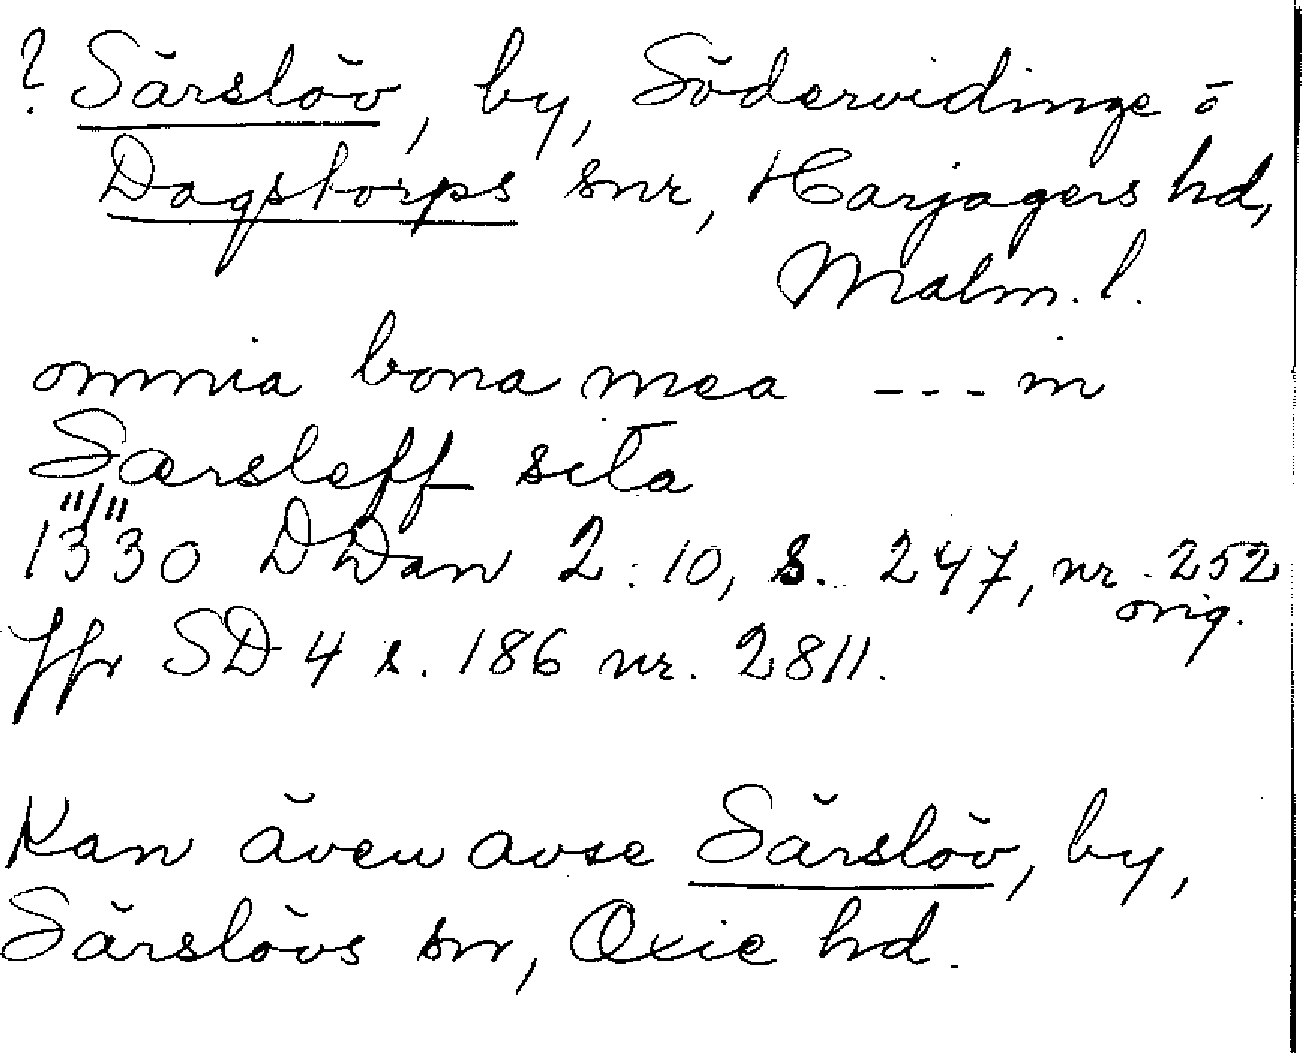 ? Särslöv, by, Södervidinge o
Dagstorps snr, Harjagers hd,
Malm. l.
omnia bona mea --- in
Særsleff sita
11/11
1330 DDan 2:10, s. 247, nr. 252
orig.
Jfr SD 4 s. 186 nr. 2811.
Kan även avse Särslöv, by,
Särslövs sn, Oxie hd.